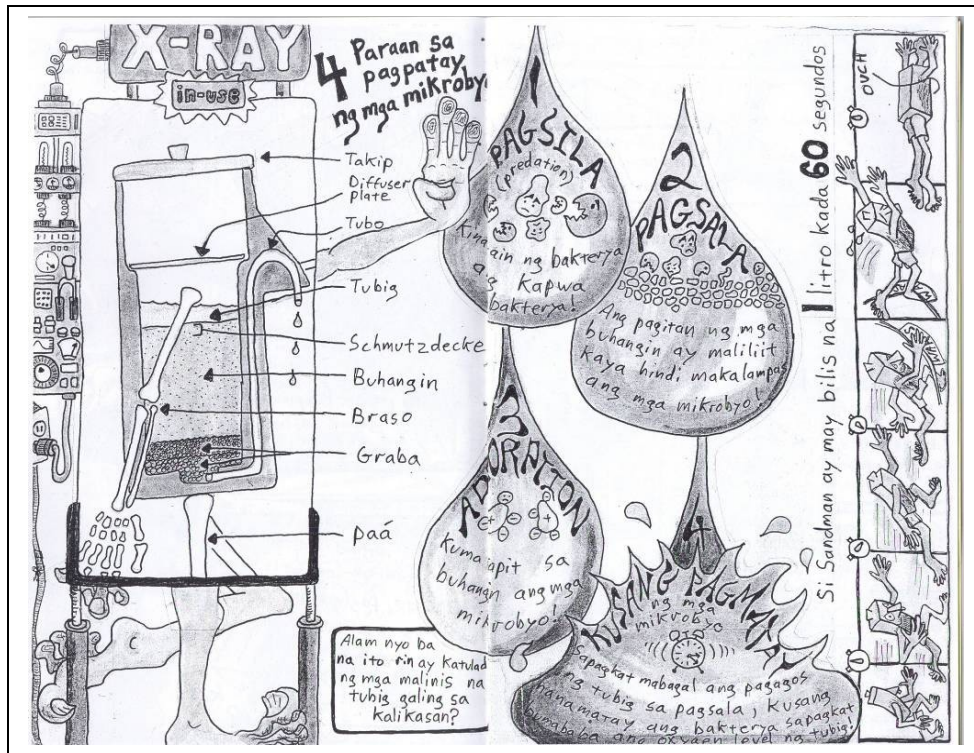 X-RAY
in-use
4 Paraan sa
pagpatay
ng mga mikroby
Takip
Diffuser
plate
Tubo
Tubig
Schmutzdecke
Buhangin
Braso
Graba
paá
Alam nyo ba
na ito rin ay katulad
ng mga malinis na
tubig galing sa
kalikasan?
1
PAGSILA
(predation)
Kina ain ng bakterya
ang kapwa
bakterya!
2
PAGSALA
Ang pagitan ng mga
buhangin ay maliliit
kaya hindi makalampas
ang mga mikrobyo!
3
Kuma apit sa
buhangin ang mga
mikrobyo!
4
KUSANG
ng mga
mikrobyo
Sapagkat mabagal ang pagagos
ng tubig sa pagsala, kusang
namamatay ang bakterya sapagkat
bumababa ang oxygen level ng tubig!
Si Sandman ay may bilis na 1 litro kada 60 segundos
OUCH